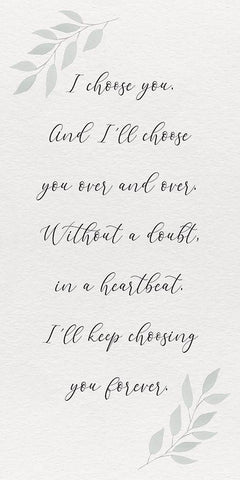 I choose you.
And I'll choose
you over and over.
Without a doubt,
in a heartbeat.
I'll keep choosing
you forever.